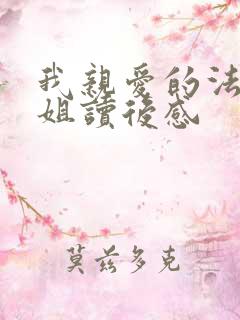 我親愛的法
姐讀後感
莫茲多克